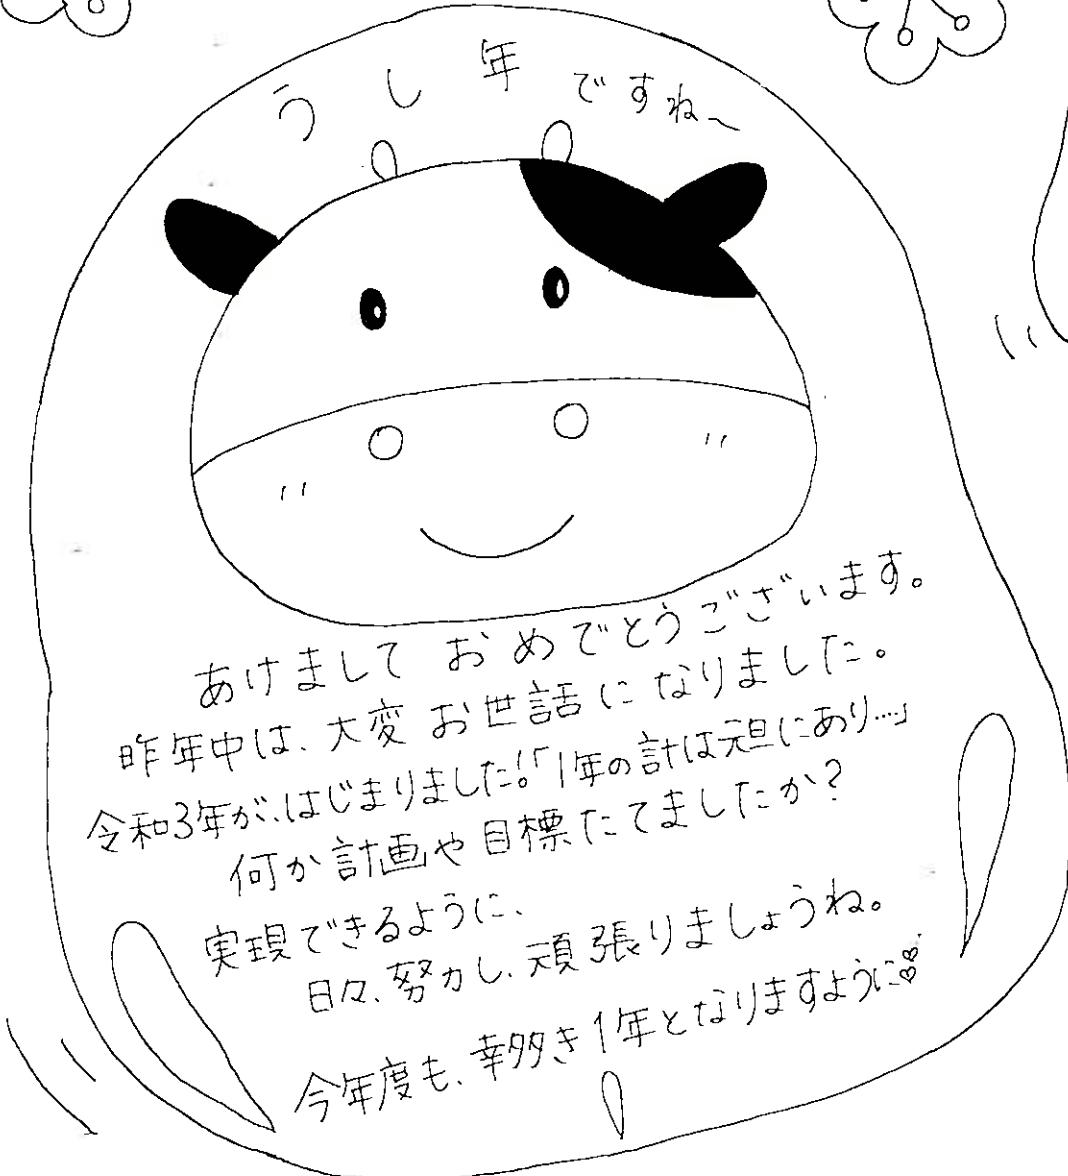 うし年ですね~
あけましておめでとうございます。
昨年中は、大変お世話になりました。
令和3年が、はじまりました!「1年の計は元旦にあり…」
何か計画や目標たてましたか?
実現できるように、
日々、努力し、頑張りましょうね。
今年度も、幸多き1年となりますように